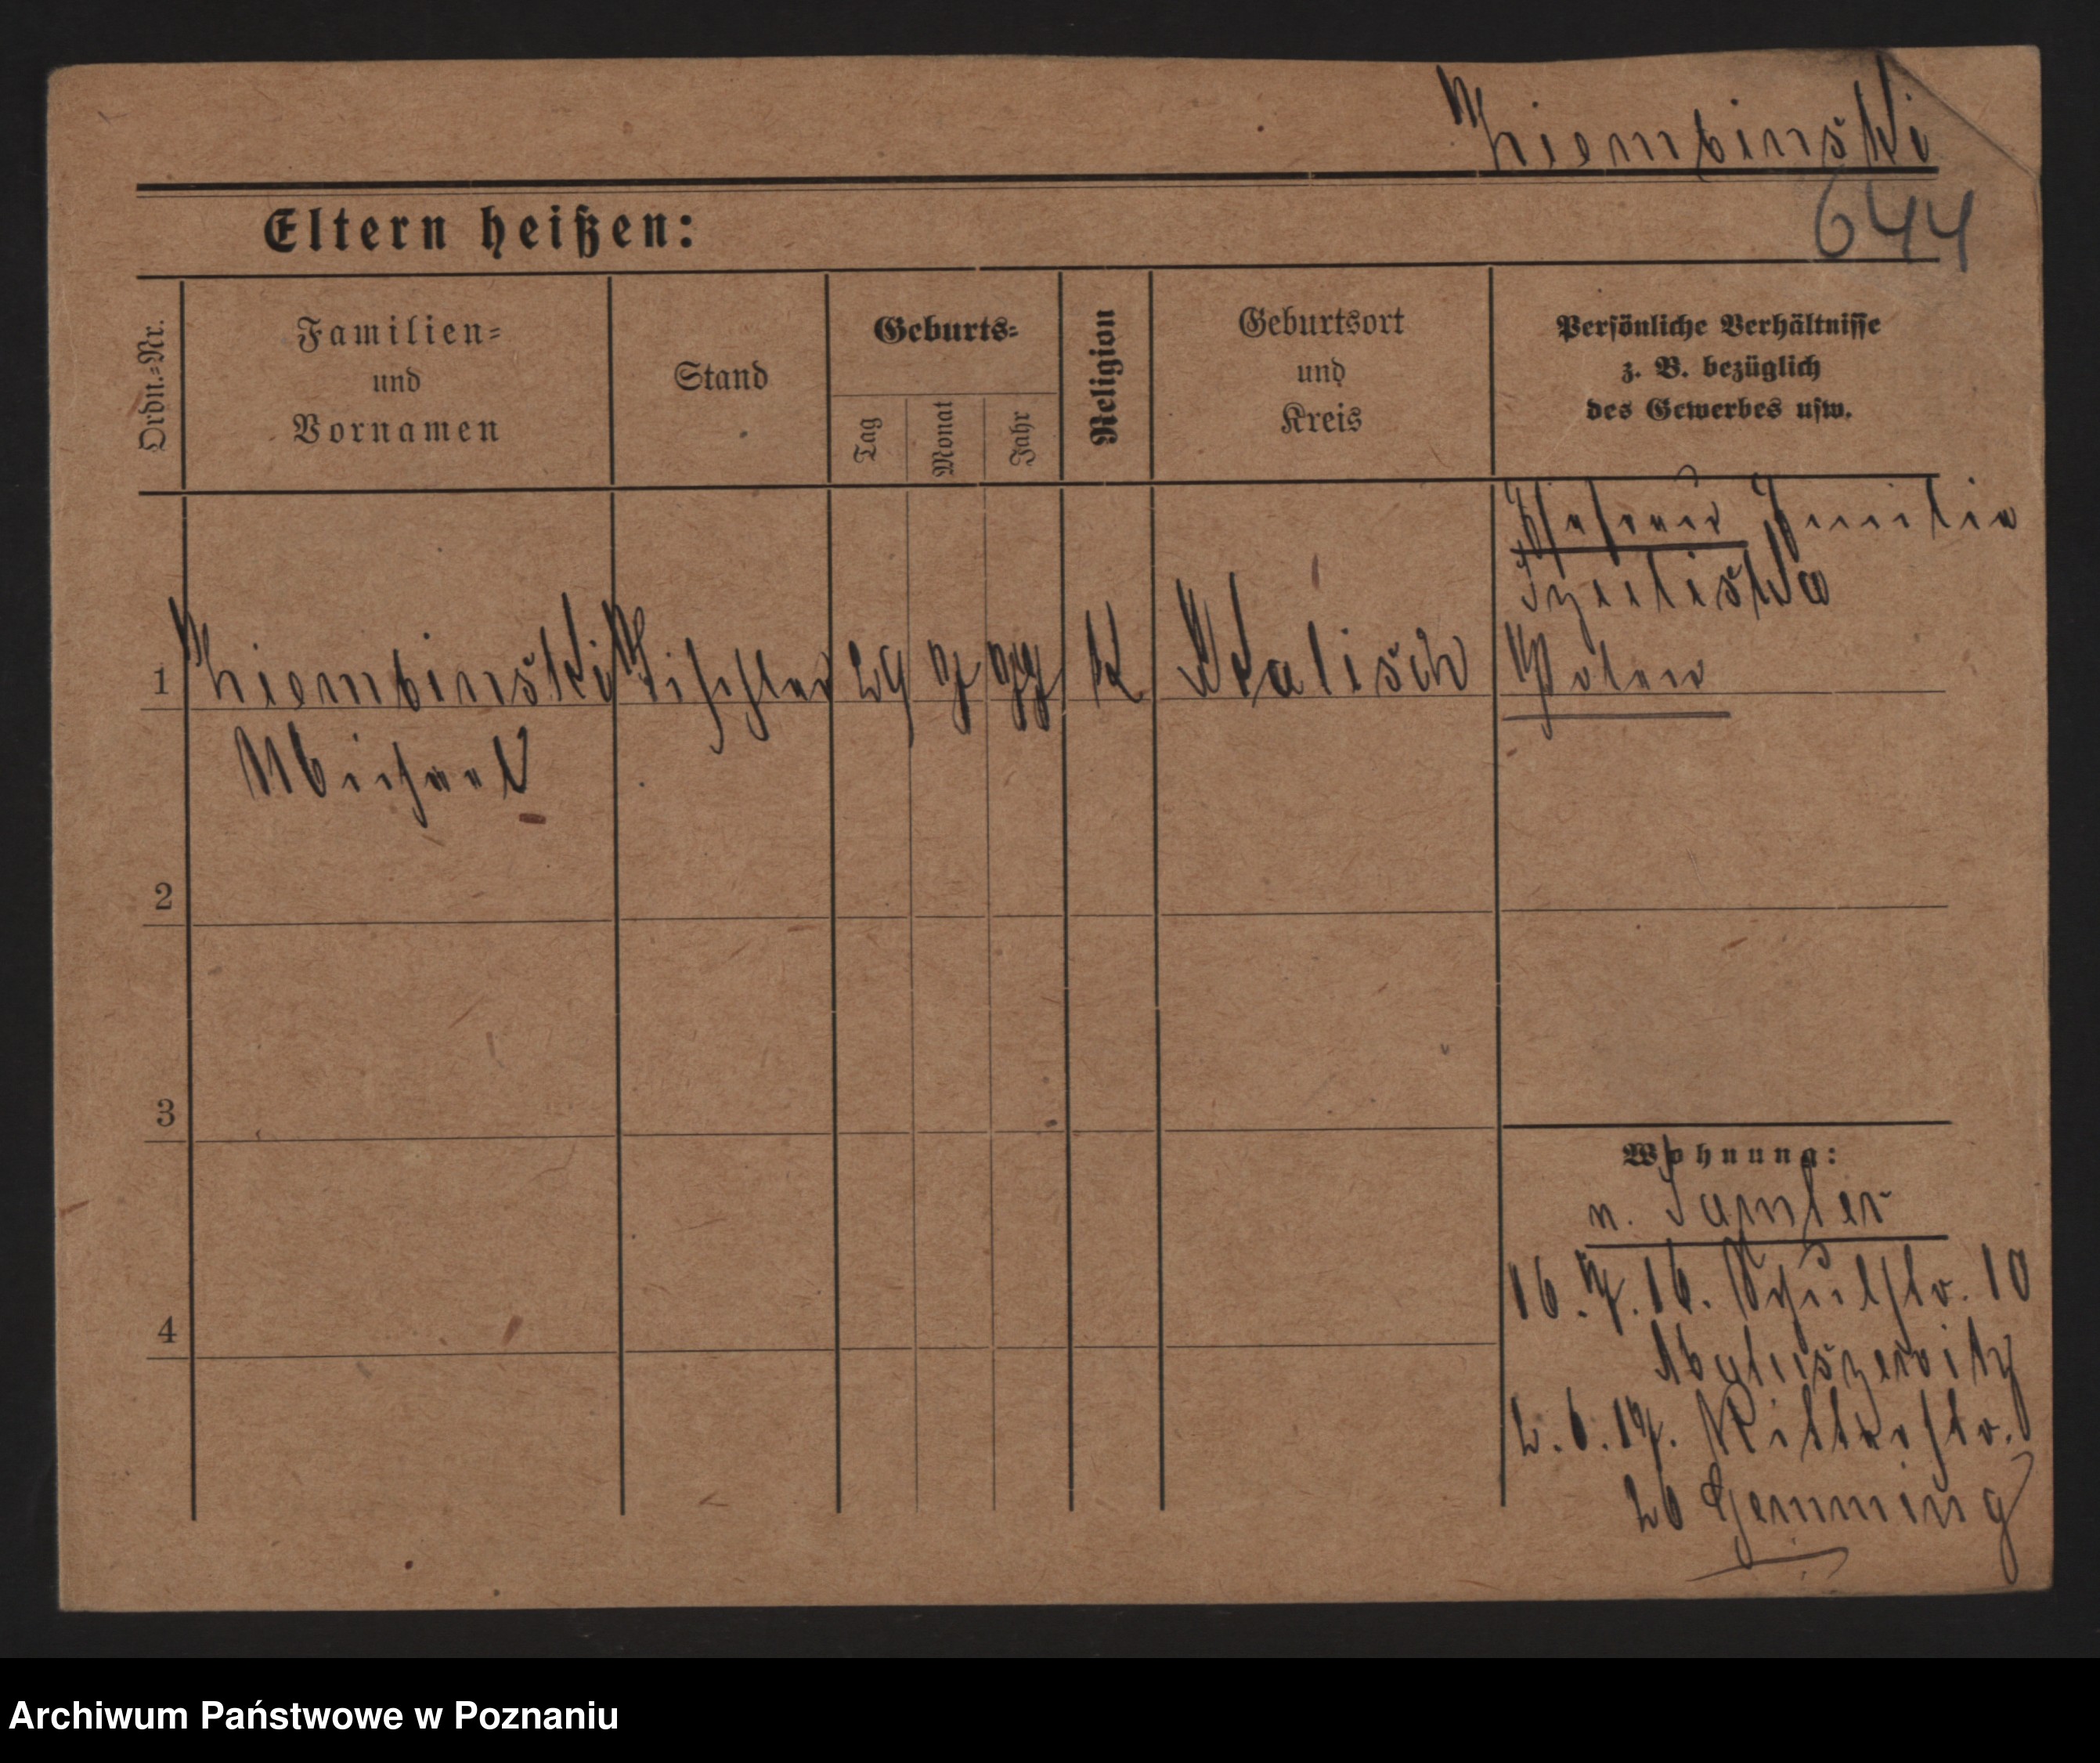 Ziembinski
644
Eltern heißen:
Ordn.-Nr.
Familien-
und
Vornamen
Stand
Geburts-
Tag
Monat
Jahr
Religion
Geburtsort
und
Kreis
Persönliche Verhältnisse
z. B. bezüglich
des Gewerbes usw.
Ehefrau Familie
Polen
1 Ziembinski Tischler 29 7 77 K Kalisch
Michael
2
3
4
Wohnung:
n. Samter
16. 7. 16. Schulstr. 10
2. 6. 17. Ritterstr.
26 Gemming
Archiwum Państwowe w Poznaniu